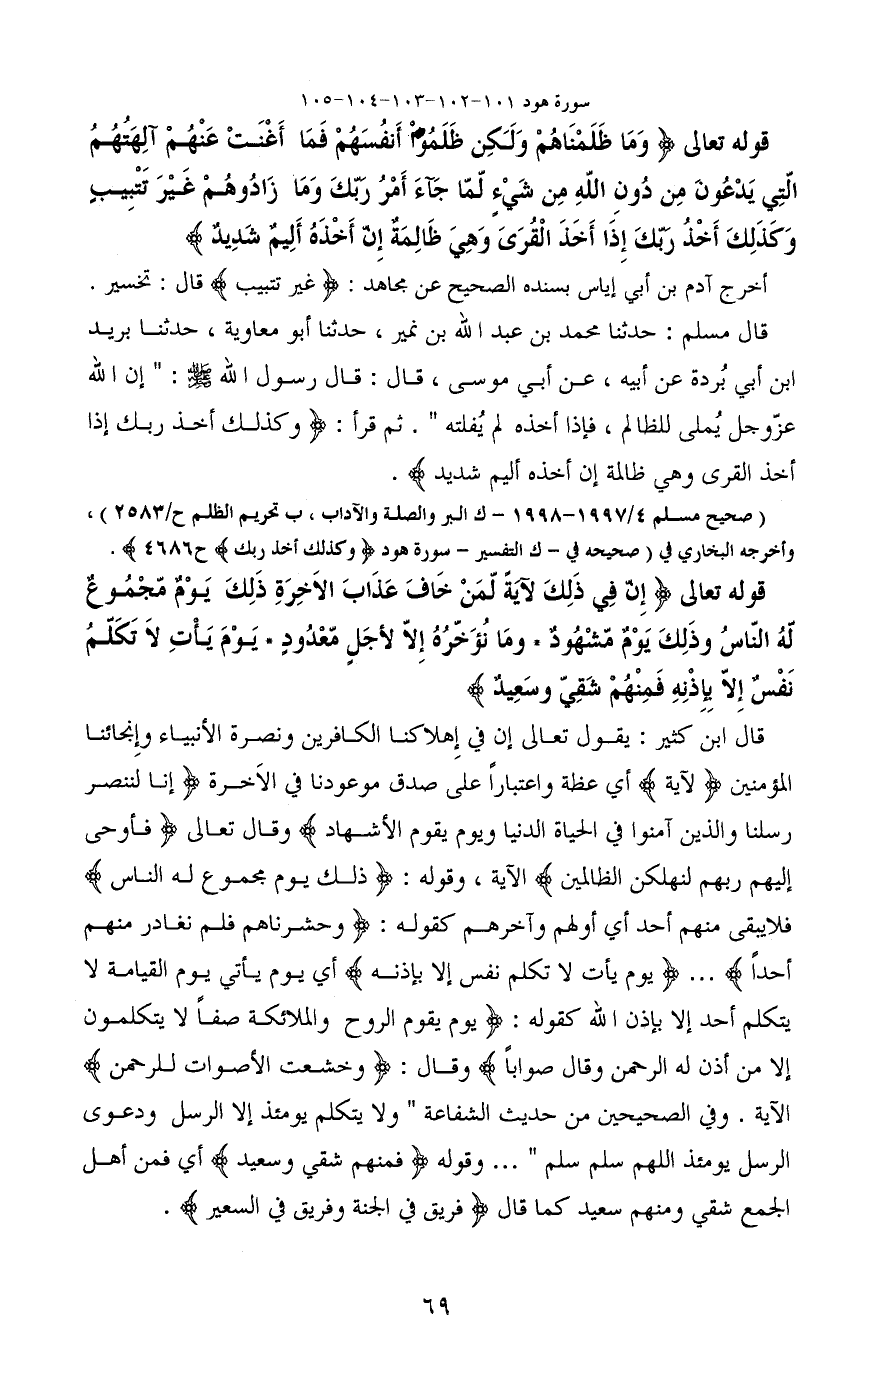 سورة هود ١٠١-١٠٢-١٠٣-١٠٤-١٠٥
قوله تعالى ﴿ وَمَا ظَلَمْنَاهُمْ وَلَكِن ظَلَمُواْ أَنفُسَهُمْ فَمَا أَغْنَتْ عَنْهُمْ آلِهَتُهُمُ
الّتِي يَدْعُونَ مِن دُونِ اللّهِ مِن شَيْءٍ لّمّا جَآءَ أَمْرُ رَبّكَ وَمَا زَادُوهُمْ غَيْرَ تَتْبِيبٍ
وَكَذَلِكَ أَخْذُ رَبّكَ إِذَا أَخَذَ الْقُرَىَ وَهِيَ ظَالِمَةٌ إِنّ أَخْذَهُ أَلِيمٌ شَدِيدٌ ﴾
أخرج آدم بن أبي إياس بسنده الصحيح عن مجاهد : ﴿ غير تتبيب ﴾ قال : تخسير .
قال مسلم : حدثنا محمد بن عبد الله بن نمير ، حدثنا أبو معاوية ، حدثنا بريد
ابن أبي بُردة عن أبيه ، عن أبي موسى ، قال : قال رسول الله ﷺ : " إن الله
عزّوجل يُملى للظالم ، فإذا أخذه لم يُفلته " . ثم قرأ : ﴿ وكذلك أخذ ربك إذا
أخذ القرى وهي ظالمة إن أخذه أليم شديد ﴾ .
( صحيح مسلم ١٩٩٧/٤-١٩٩٨ - ك البر والصلة والآداب ، ب تحريم الظلم ح/٢٥٨٣ ) ،
وأخرجه البخاري في ( صحيحه في - ك التفسير - سورة هود ﴿ وكذلك أخذ ربك ﴾ ح٤٦٨٦ ﴾ .
قوله تعالى ﴿ إِنّ فِي ذَلِكَ لآيَةً لّمَنْ خَافَ عَذَابَ الاَخِرَةِ ذَلِكَ يَوْمٌ مّجْمُوعٌ
لّهُ النّاسُ وذَلِكَ يَوْمٌ مّشْهُودٌ * ومَا نُؤَخّرُهُ إِلاّ لأجَلٍ مّعْدُودٍ * يَوْمَ يَأْتِ لاَ تَكَلّمُ
نَفْسٌ إِلاّ بِإِذْنِهِ فَمِنْهُمْ شَقِيّ وسَعِيدٌ ﴾
قال ابن كثير : يقول تعالى إن في إهلاكنا الكافرين ونصرة الأنبياء وإنجائنا
المؤمنين ﴿ لآية ﴾ أي عظة واعتباراً على صدق موعودنا في الآخرة ﴿ إنا لننصر
رسلنا والذين آمنوا في الحياة الدنيا ويوم يقوم الأشهاد ﴾ وقال تعالى ﴿ فأوحى
إليهم ربهم لنهلكن الظالمين ﴾ الآية ، وقوله : ﴿ ذلك يوم مجموع له الناس ﴾
فلايبقى منهم أحد أي أولهم وآخرهم كقوله : ﴿ وحشرناهم فلم نغادر منهم
أحداً ﴾ ... ﴿ يوم يأت لا تكلم نفس إلا بإذنه ﴾ أي يوم يأتي يوم القيامة لا
يتكلم أحد إلا بإذن الله كقوله : ﴿ يوم يقوم الروح والملائكة صفاً لا يتكلمون
إلا من أذن له الرحمن وقال صواباً ﴾ وقال : ﴿ وخشعت الأصوات للرحمن ﴾
الآية . وفي الصحيحين من حديث الشفاعة " ولا يتكلم يومئذ إلا الرسل ودعوى
الرسل يومئذ اللهم سلم سلم " ... وقوله ﴿ فمنهم شقي وسعيد ﴾ أي فمن أهل
الجمع شقي ومنهم سعيد كما قال ﴿ فريق في الجنة وفريق في السعير ﴾ .
٦٩